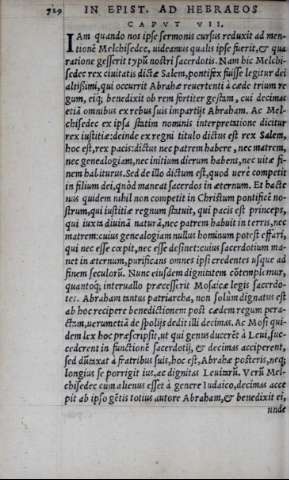 729 IN EPIST. AD HEBRAEOS
CAPVT VII.
IAm quando nos ipse sermonis cursus reduxit ad men-
tionẽ Melchisedec, uideamus qualis ipse fuerit, & qua
ratione gesserit typũ nostri sacerdotis. Nam hic Melchi-
sedec rex ciuitatis dictæ Salem, pontifex fuisse legitur dei
altissimi, qui occurrit Abrahæ reuertenti à cæde trium re
gum, eiq; benedixit ob rem fortiter gestam, cui decimas
etiã omnibus ex rebus suis impartijt Abraham. Ac Mel-
chisedec ex ipsa statim nominis interpretatione dicitur
rex iustitiæ: deinde ex regni titulo dictus est rex Salem,
hoc est, rex pacis: dictus nec patrem habere, nec matrem,
nec genealogiam, nec initium dierum habens, nec uitæ fi-
nem habiturus. Sed de illo dictum est, quod uerè competit
in filium dei, quòd maneat sacerdos in æternum. Et hacte
nus quidem nihil non competit in Christum pontificẽ no-
strum, qui iustitiæ regnum statuit, qui pacis est princeps,
qui iuxta diuinã naturã, nec patrem habuit in terris, nec
matrem: cuius genealogiam nullus hominum potest effari,
qui nec esse cœpit, nec esse desinet: cuius sacerdotium ma-
net in æternum, purificans omnes ipsi credentes usque ad
finem seculorũ. Nunc eiusdem dignitatem cõtemplemur,
quantoq; interuallo præcesserit Mosaicæ legis sacerdo-
tes. Abraham tantus patriarcha, non solùm dignatus est
ab hoc recipere benedictionem post cædem regum pera-
ctam, uerumetiã de spolijs dedit illi decimas. Ac Mosi qui-
dem lex hoc præscripsit, ut qui genus ducerẽt à Leui, suc-
cederent in functionẽ sacerdotij, & decimas acciperent,
sed dũtaxat à fratribus suis, hoc est, Abrahæ posteris, neq;
longius se porrigit ius, ac dignitas Leuitarũ. Verũ Mel-
chisedec cum alienus esset à genere Iudaico, decimas acce
pit ab ipso gẽtis totius autore Abraham, & benedixit ei,
unde